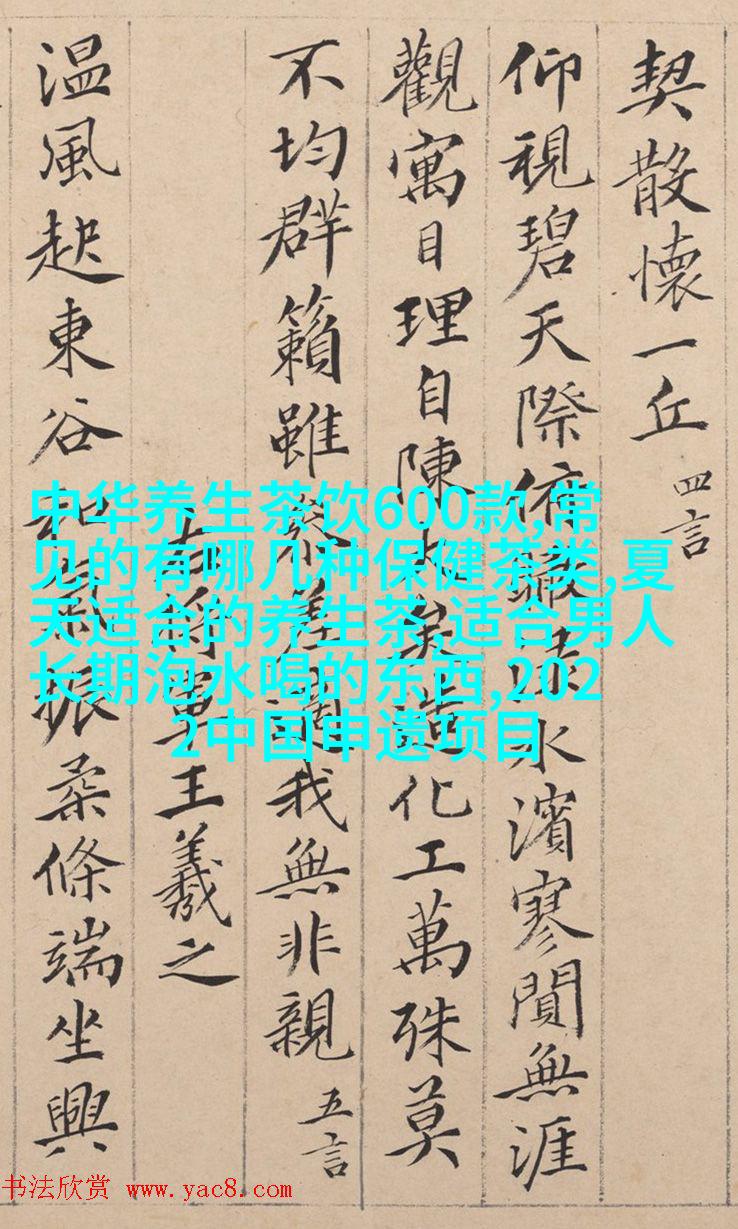 契散懷一丘 四言
仰視碧天際俯水濱寥無涯
觀寓目理自陳大矣造化工萬殊莫
不均群籟雖參差適我無非親 五言
右將軍王羲之
温風起東谷和氣振柔條端坐興
中华养生茶饮600款,常
见的有哪几种保健茶类,夏
天适合的养生茶,适合男人
长期泡水喝的东西,202
2中国申遗项目
书法欣赏 www.yac8.com